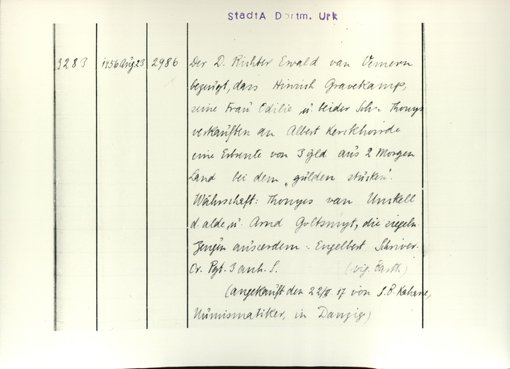 StadtA Dortm. Urk
3283 1456 Aug 23 2986 Der D. Richter Ewald van Vemern
bezeugt, dass Hinrich Gravekamp,
seine Frau Odilie u. beider Soh. Thonys
verkauften an Albert Kerckhörde
eine Erbrente von 3 gld aus 2 Morgen
Land bei dem "gulden stucken".
Währschaft: Thonyes van Unckell
d. alde, u. Arnd Goltsmyt, die siegeln
Zeugen ausserdem: Engelbert Schriver.
Or. Pgt. 3 anh. S.
(angekauft den 22/8. 17 von S. P. Kahane,
Numismatiker, in Danzig)